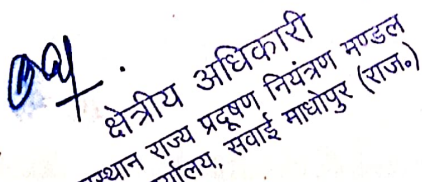 क्षेत्रीय अधिकारी
स्थान राज्य प्रदूषण नियंत्रण मण्डल
र्यालय, सवाई माधोपुर (राज०)